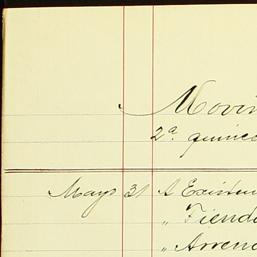 Movi
2ª quince
Mayo 31 A Existen
" Tiend
" Arrend